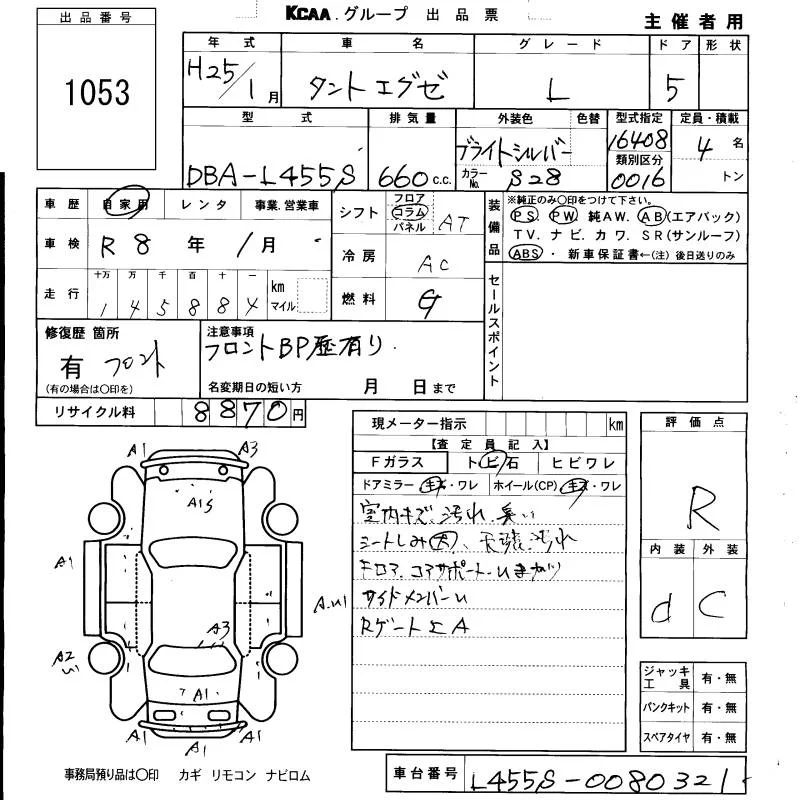 KCAA.グループ 出品票
主催者用
出品番号
1053
年式 車名 グレード ドア 形状
H25/1月 タントエグゼ L 5
型式 排気量 外装色 色替 型式指定 定員・積載
DBA-L455S 660c.c. ブライトシルバー 16408 4名
カラーNo. S28 類別区分 0016 トン
車歴 自家用 レンタ 事業.営業車
車検 R8年1月
走行 十万 万 千 百 十 一
145884 km マイル
シフト フロア コラム パネル AT
冷房 AC
燃料 G
装備品
※純正のみ〇印をつけて下さい。
PS PW 純AW. AB(エアバック)
TV. ナビ. カワ. SR(サンルーフ)
ABS・新車保証書←(注)後日送りのみ
セールスポイント
修復歴 箇所
有 フロント
(有の場合は〇印を)
注意事項
フロントBP歴有り.
名変期日の短い方 月 日まで
リサイクル料 8870円
現メーター指示 km
【査定員記入】
Fガラス トビ石 ヒビワレ
ドアミラー キズ・ワレ ホイール(CP) キズ・ワレ
室内キズ、汚れ、臭い
シートしみ大、天張汚れ
コアサポートU
サイドメンバーU
RゲートΣA
評価点
R
内装 外装
d C
ジャッキ工具 有・無
パンクキット 有・無
スペアタイヤ 有・無
A1 A3
A1S
A1 A1
A.U1
A3
A2
U1
A1
A1 A1
事務局預り品は〇印 カギ リモコン ナビロム
車台番号 L455S-0080321